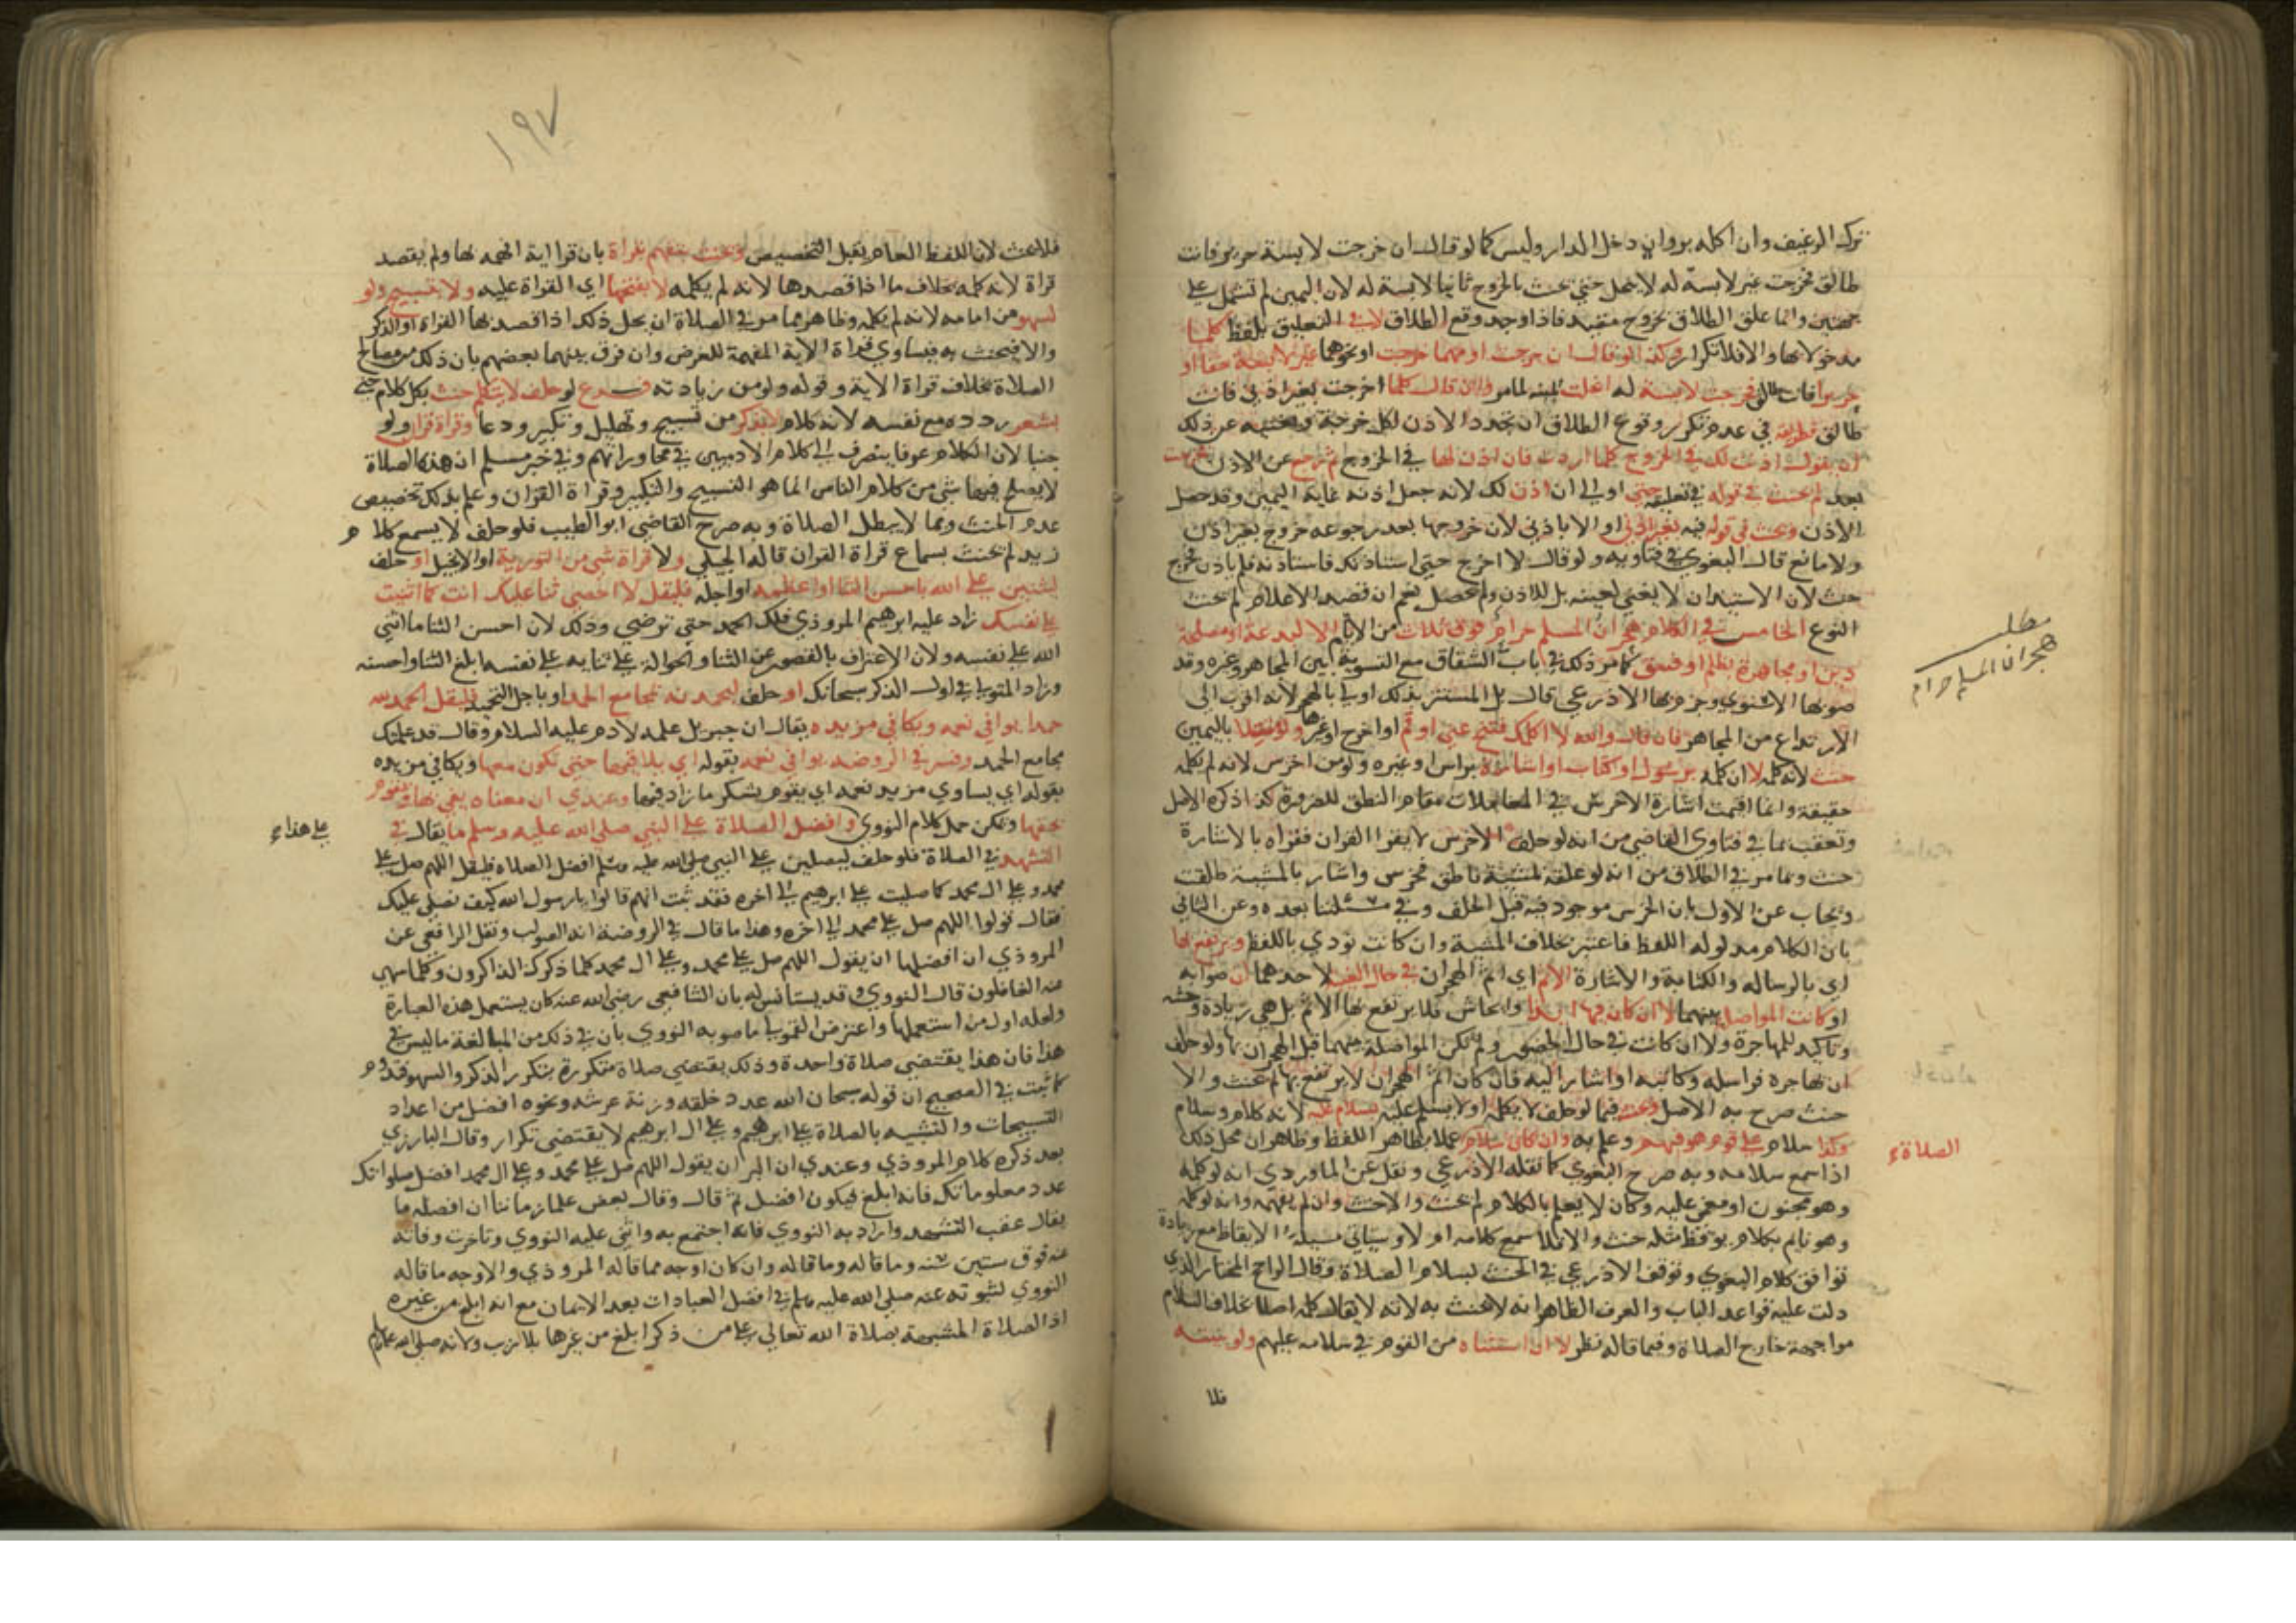 ترك الرغيف وان اكله بر وان دخل الدار وليس كما لو قال ان خرجت لابسة حرير فانت
طالق فخرجت غير لابسة له لا ينحل حتي يحنث بالخروج ثانيا لابسة له لان اليمين لم تشتمل علي
جهتين وانما علق الطلاق بخروج مقيد فاذا وجد وقع الطلاق لا في التعليق بلفظ كلما
مدخولا بها والا فلا تكرار وكذا لو قال ان خرجت او مهما خرجت او نحوهما غير لابسة خفا او
حريرا فانت طالق فخرجت لابسة له انحلت اليمين لما مر وان قال كلما خرجت بغير اذني فانت
طالق فطريقه في عدم تكرر وقوع الطلاق ان يجدد الاذن لكل خرجة ويغنيه عن ذلك
ان يقول اذنت لك في الخروج كلما اردت فان اذن لها في الخروج ثم رجع عن الاذن فخرجت
بعد لم يحنث في قوله في تعليقه حتي او الي ان اذن لك لانه جعل اذنه غاية اليمين وقد حصل
الاذن وحنث في قوله فيه بغير اذني او الا باذني لان خروجها بعد رجوعه خروج بغير اذن
ولا مانع قال البغوي في فتاويه ولو قال لا اخرج حتي استاذنك فاستاذنه فلم ياذن فخرج
حنث لان الاستيذان لا يغني لعينه بل للاذن ولم يحصل نعم ان قصد الاعلام لم يحنث
النوع الخامس في الكلام هجران المسلم حرام فوق ثلاث من الايام الا لبدعة او مصلحة
دين او مجاهرة بظلم او فسق كما مر ذلك في باب الشقاق مع التسوية بين المجاهر وغيره وقد
صوبها الاسنوي وجزم بها الاذرعي قال بل المستتر بذلك اولي بالهجر لانه اقرب الي
الارتداع من المجاهر فان قال والله لا اكلمك فتنح عني او قم او اخرج او غيرها ولو متصلا باليمين
حنث لانه كلمه لا ان كلمه برسول او كتاب او اشارة براس او غيره ولو من اخرس لانه لم يكلمه
حقيقة وانما اقيمت اشارة الاخرس في المعاملات مقام النطق للضرورة كذا ذكره الاصل
وتعقب بما في فتاوي القاضي من انه لو حلف الاخرس لا يقرا القران فقراه بالاشارة
حنث وبما مر في الطلاق من انه لو علقه بمشيئة ناطق فخرس واشار بالمشية طلقت
ويجاب عن الاول بان الخرس موجود فيه قبل الحلف وفي مسئلتنا بعده وعن الثاني
بان الكلام مدلوله اللفظ فاعتبر بخلاف المشية وان كانت تودي باللفظ ويرتفع بها
اي بالرسالة والكتابة والاشارة الاثم اي اثم الهجران في حال الغيبة لاحدهما ان صوابه
او كانت المواصل بينهما لا ان كان فيها ايذا وايحاش فلا يرتفع بها الاثم بل هي زيادة وحشة
وتاكيد للمهاجرة ولا ان كانت في حال الحضور ولم تكن المواصلة بينهما قبل الهجران بها ولو حلف
ان يهاجره فراسله وكاتبه او اشار اليه فان كان اثم الهجران لا يرتفع بها لم يحنث والا
حنث صرح به الاصل وحنث فيما لو حلف لا يكلمه او لا يسلم عليه بسلام عليه لانه كلام وسلام
وكذا سلام علي قوم هو فيهم وعلم به وان كان سلام عملا بظاهر اللفظ وظاهر ان محل ذلك
اذا سمع سلامه وبه صرح البغوي كما نقله الاذرعي ونقل عن الماوردي انه لو كلمه
وهو مجنون او مغمي عليه وكان لا يعلم بالكلام لم يحنث والا حنث وان لم يفهمه وانه لو كلمه
وهو نايم بكلام يوقظ مثله حنث والا فلا سمع كلامه او لا وسياتي مسيلة الايقاظ مع زيادة
توافق كلام البغوي وتوقف الاذرعي في الحنث بسلام الصلاة وقال الراجح المختار الذي
دلت عليه قواعد الباب والعرف الظاهر انه لا يحنث به لانه لا يقال كلمه اصلا بخلاف السلام
مواجهة خارج الصلاة وفيما قاله نظر لا ان استثناه من القوم في سلامه عليهم ولو بنيته
فلا
مطلب
هجران المسلم حرام
الصلاة
١٩٧
فلا يحنث لان اللفظ العام يقبل التخصيص وحنث بتفهيم بقراة بان قرا اية افهمه بها ولم يقصد
قراة لانه كلمه بخلاف ما اذا قصدها لانه لم يكلمه لا بفتحها اي القراة عليه ولا بتسبيح ولو
لسهو من امامه لانه لم يكلمه وظاهر مما مر في الصلاة ان محل ذلك اذا قصد بها القراة او الذكر
والا فيحنث به فيساوي قراة الاية المفهمة للغرض وان فرق بينهما بعضهم بان ذلك من مصالح
الصلاة بخلاف قراة الاية وقوله ولو من زيادته فرع لو حلف لا يتكلم حنث بكل كلام حتي
بشعر ردده مع نفسه لانه كلام لا بذكر من تسبيح وتهليل وتكبير ودعا وقراة قران ولو
جنبا لان الكلام عرفا ينصرف الي كلام الادميين في محاوراتهم وفي خبر مسلم ان هذه الصلاة
لا يصلح فيها شي من كلام الناس انما هو التسبيح والتكبير وقراة القران وعلم بذلك تخصيص
عدم الحنث وبما لا يبطل الصلاة وبه صرح القاضي ابو الطيب فلو حلف لا يسمع كلام
زيد لم يحنث بسماع قراة القران قاله الجيلي ولا قراة شي من التورية او الانجيل او حلف
ليثنين علي الله باحسن الثنا او اعظمه او اجله فليقل لا احصي ثنا عليك انت كما اثنيت
علي نفسك زاد عليه ابرهيم المروذي فلك الحمد حتي ترضي وذلك لان احسن الثنا ما اثني
الله علي نفسه ولان الاعتراف بالقصور عن الثنا والحوالة علي ثنايه علي نفسه ابلغ الثنا واحسنه
وزاد المتولي في اول الذكر سبحانك او حلف ليحمدنه بمجامع الحمد او باجل التحميد فليقل الحمد لله
حمدا يوافي نعمه ويكافي مزيده يقال ان جبريل علمه لادم عليه السلام وقال قد علمتك
مجامع الحمد وفسر في الروضة يوافي نعمه بقوله اي يلاقيها حتي تكون معها ويكافي مزيده
بقوله اي يساوي مزيد نعمه اي يقوم بشكر ما زاد فيها وعندي ان معناه يفي بها ويقوم
بحقها ويمكن حمل كلام النووي وافضل الصلاة علي النبي صلي الله عليه وسلم ما يقال في
علي هذا
التشهد في الصلاة فلو حلف ليصلين علي النبي صلي الله عليه وسلم افضل الصلاة فليقل اللهم صل علي
محمد وعلي ال محمد كما صليت علي ابرهيم الي اخره فقد ثبت انهم قالوا يا رسول الله كيف نصلي عليك
فقال قولوا اللهم صل علي محمد الي اخره وهذا ما قال في الروضة انه الصواب ونقل الرافعي عن
المروذي ان افضلها ان يقول اللهم صل علي محمد وعلي ال محمد كلما ذكرك الذاكرون وكلما سهي
عنه الغافلون قال النووي وقد يستانس له بان الشافعي رضي الله عنه كان يستعمل هذه العبارة
ولعله اول من استعملها واعترض القمولي ما صوبه النووي بان في ذلك من المبالغة ما ليس في
هذا فان هذا يقتضي صلاة واحدة وذلك يقتضي صلاة متكررة بتكرر الذكر والسهو فتدوم
كما ثبت في الصحيح ان قوله سبحان الله عدد خلقه وزنة عرشه ونحوه افضل من اعداد
التسبيحات والتشبيه بالصلاة علي ابرهيم وعلي ال ابرهيم لا يقتضي تكرار وقال البارزي
بعد ذكره كلام المروذي وعندي ان البر ان يقول اللهم صل علي محمد وعلي ال محمد افضل صلواتك
عدد معلوماتك فانه ابلغ فيكون افضل ثم قال وقال بعض علما زماننا ان افضله ما
يقال عقب التشهد واراد به النووي فانه اجتمع به واثني عليه النووي وتاخرت وفاته
عنه فوق ستين سنه وما قاله وما قاله وان كان اوجه مما قاله المروذي والاوجه ما قاله
النووي لثبوته عنه صلي الله عليه وسلم في افضل العبادات بعد الايمان مع انه ابلغ من غيره
اذ الصلاة المشبهة بصلاة الله تعالي علي من ذكر ابلغ من غيرها بلا ريب ولانه صلي الله عليه وسلم